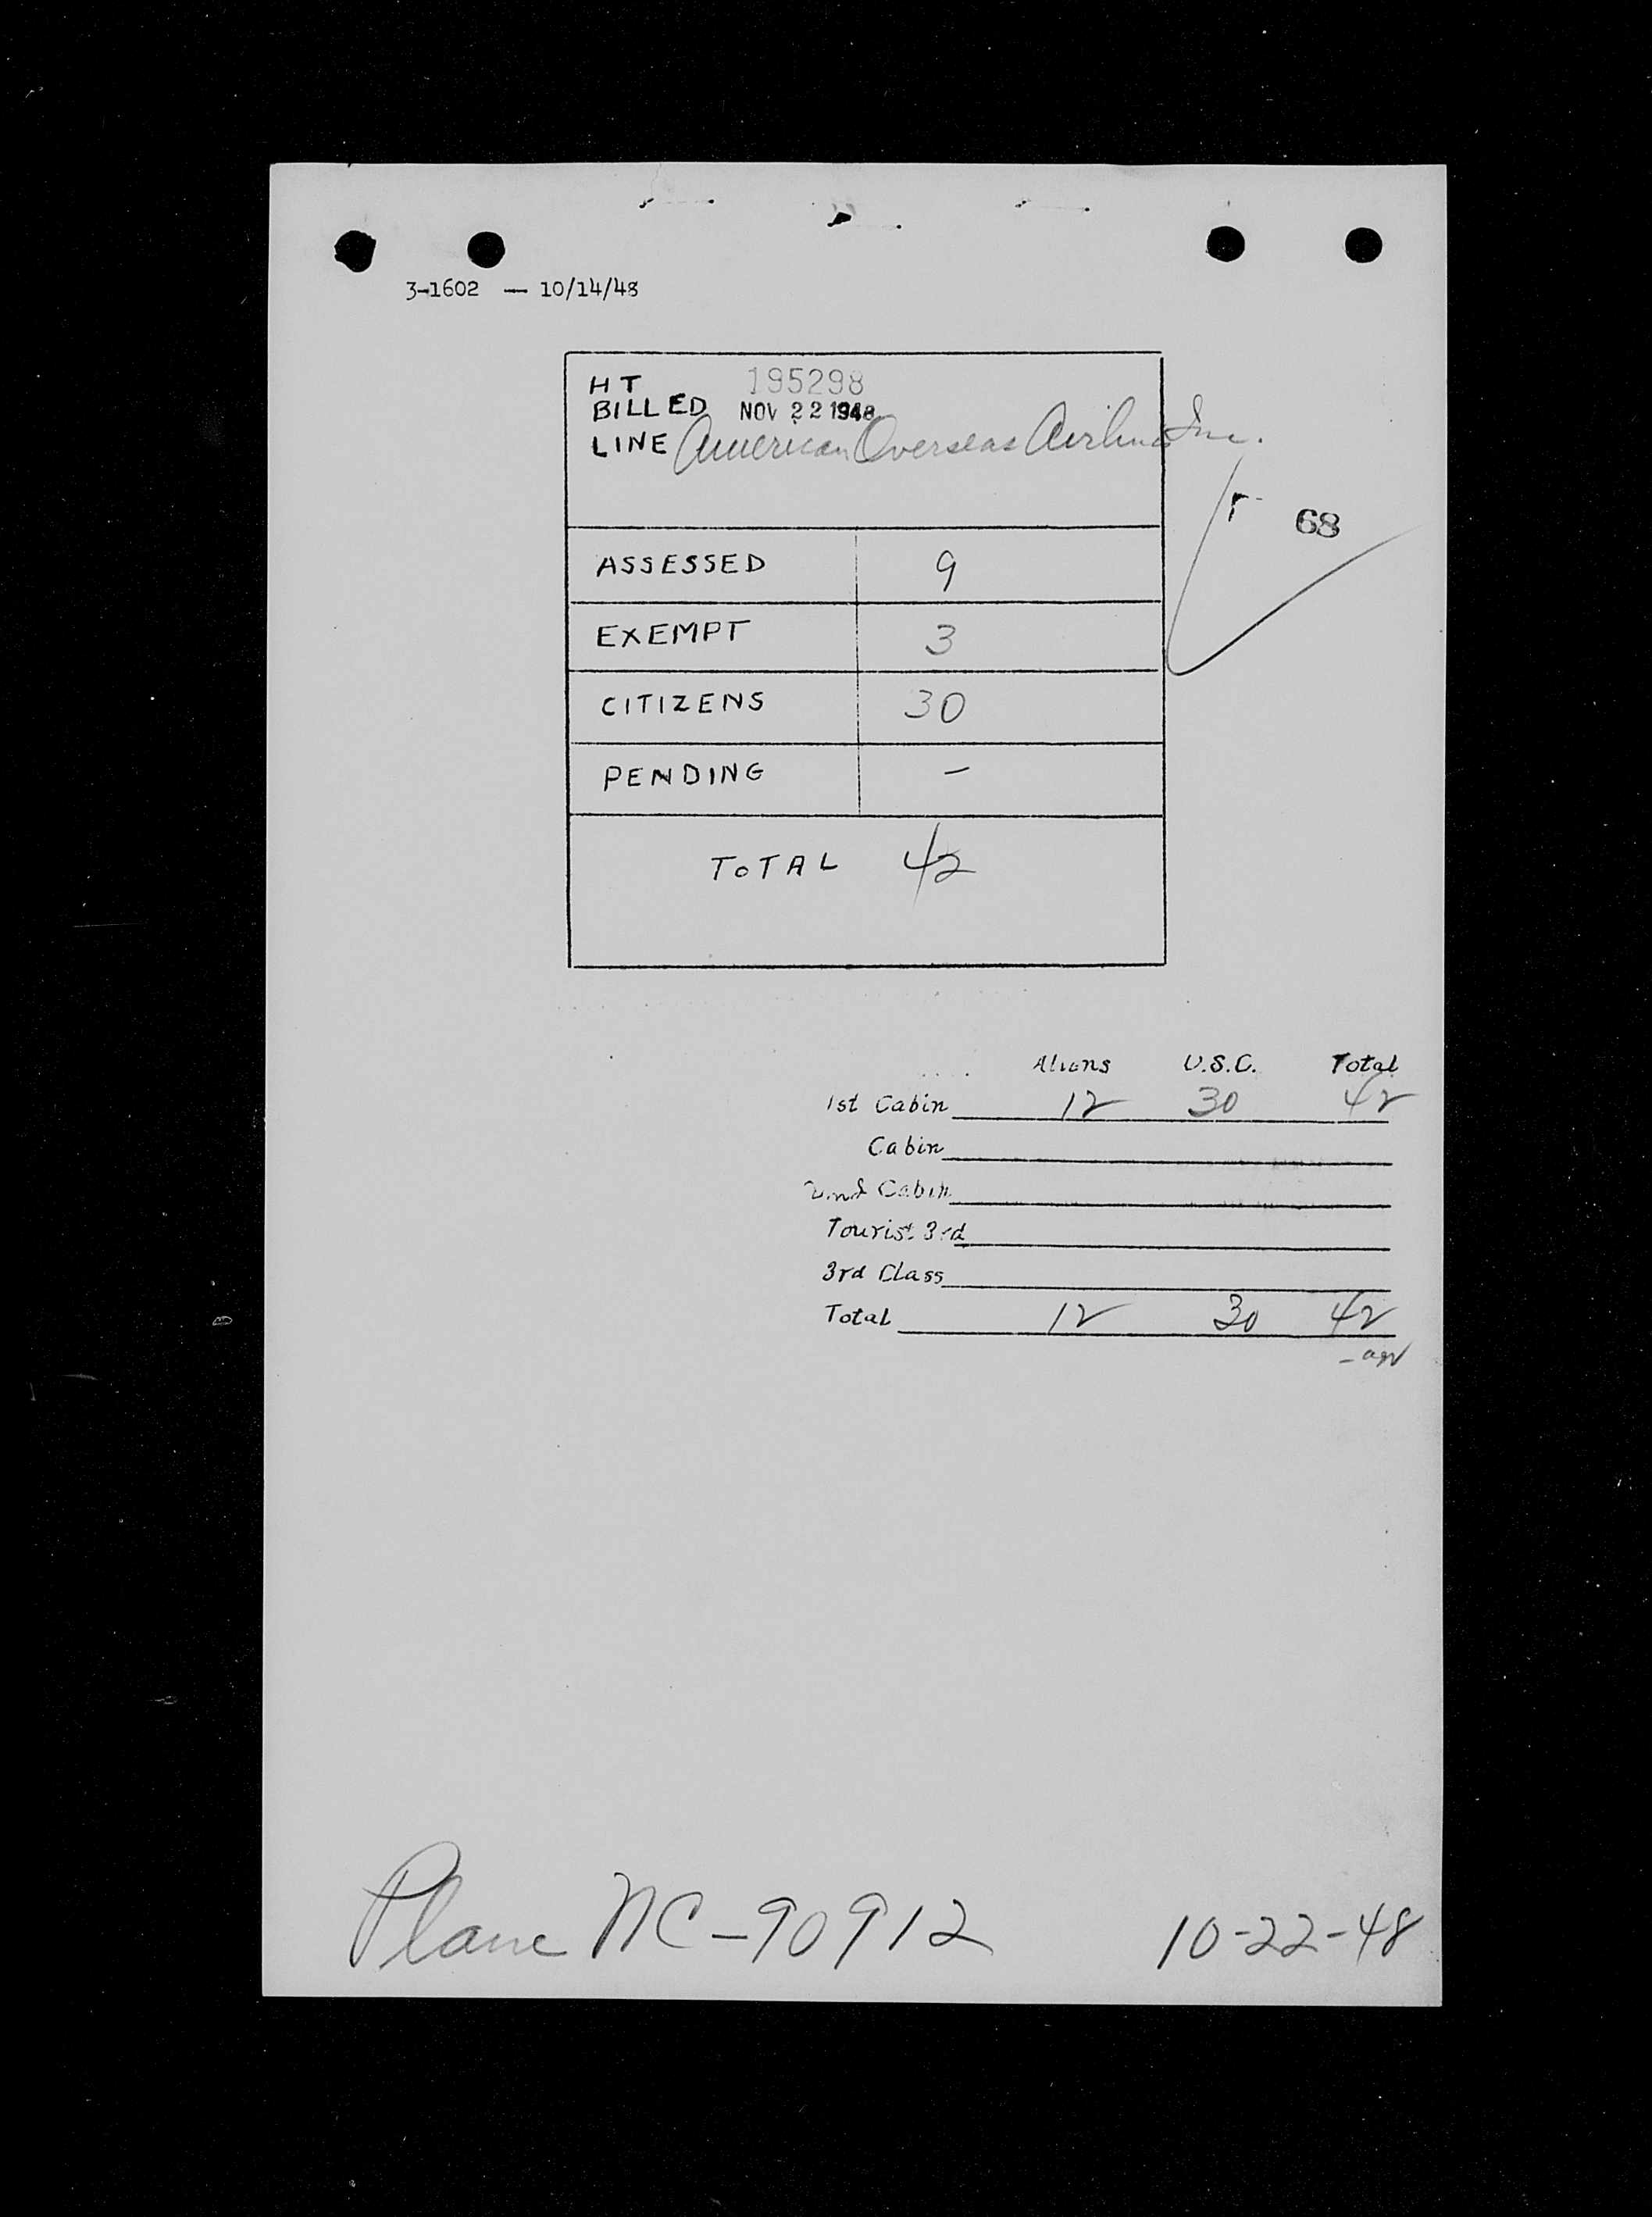 3-1602 — 10/14/48
HT 195298
BILLED NOV 22 1948
LINE American Overseas Airlines Inc.
68
ASSESSED 9
EXEMPT 3
CITIZENS 30
PENDING —
TOTAL 42
Aliens U.S.C. Total
1st Cabin 12 30 42
Cabin
2nd Cabin
Tourist 3rd
3rd Class
Total 12 30 42
Plane NC-90912 10-22-48